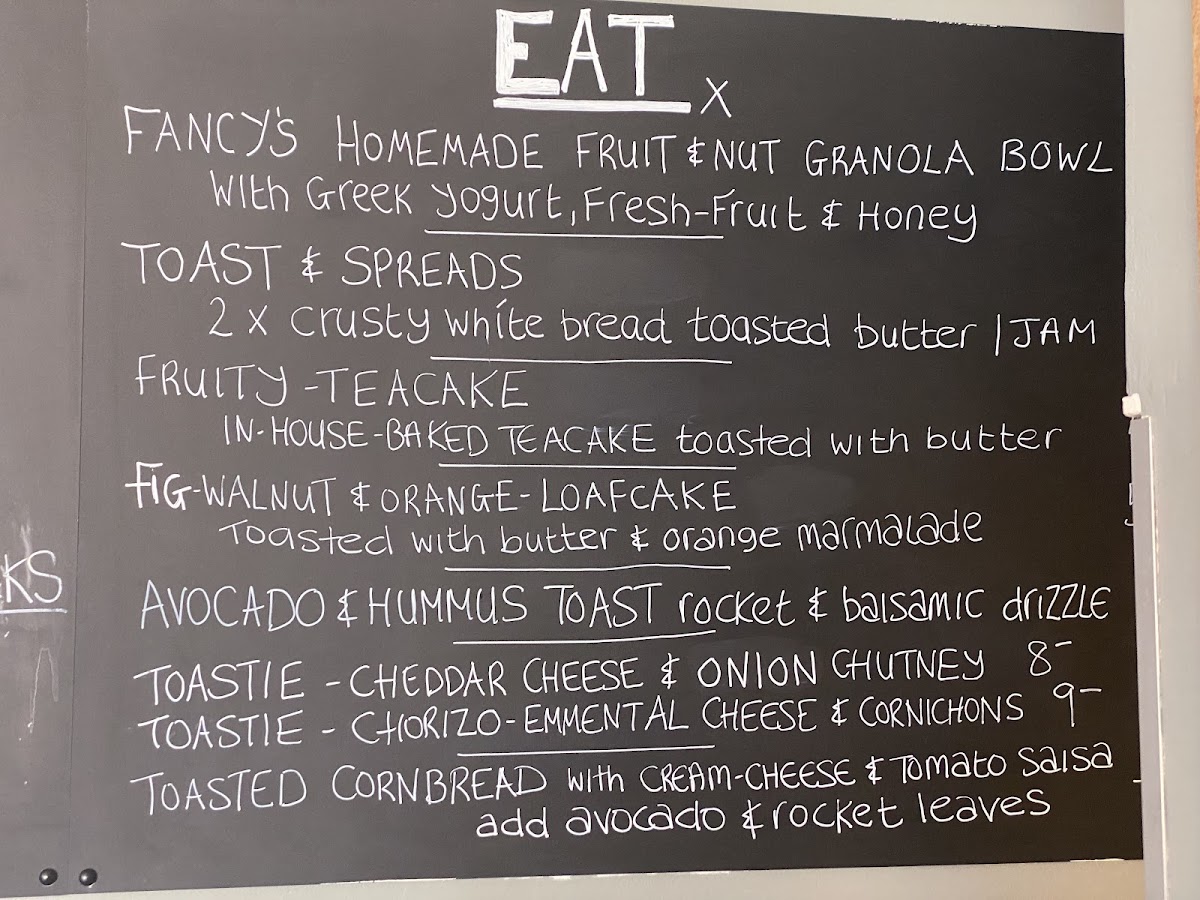 EAT x
FANCY'S HOMEMADE FRUIT & NUT GRANOLA BOWL
With Greek yogurt, Fresh-Fruit & Honey
TOAST & SPREADS
2 x crusty white bread toasted butter / JAM
FRUITY - TEACAKE
IN-HOUSE-BAKED TEACAKE toasted with butter
FIG-WALNUT & ORANGE-LOAFCAKE
Toasted with butter & orange marmalade
KS
AVOCADO & HUMMUS TOAST rocket & balsamic drIZZLE
TOASTIE - CHEDDAR CHEESE & ONION CHUTNEY 8-
TOASTIE - CHORIZO-EMMENTAL CHEESE & CORNICHONS 9-
TOASTED CORNBREAD with CREAM-CHEESE & Tomato Salsa
add avocado & rocket leaves